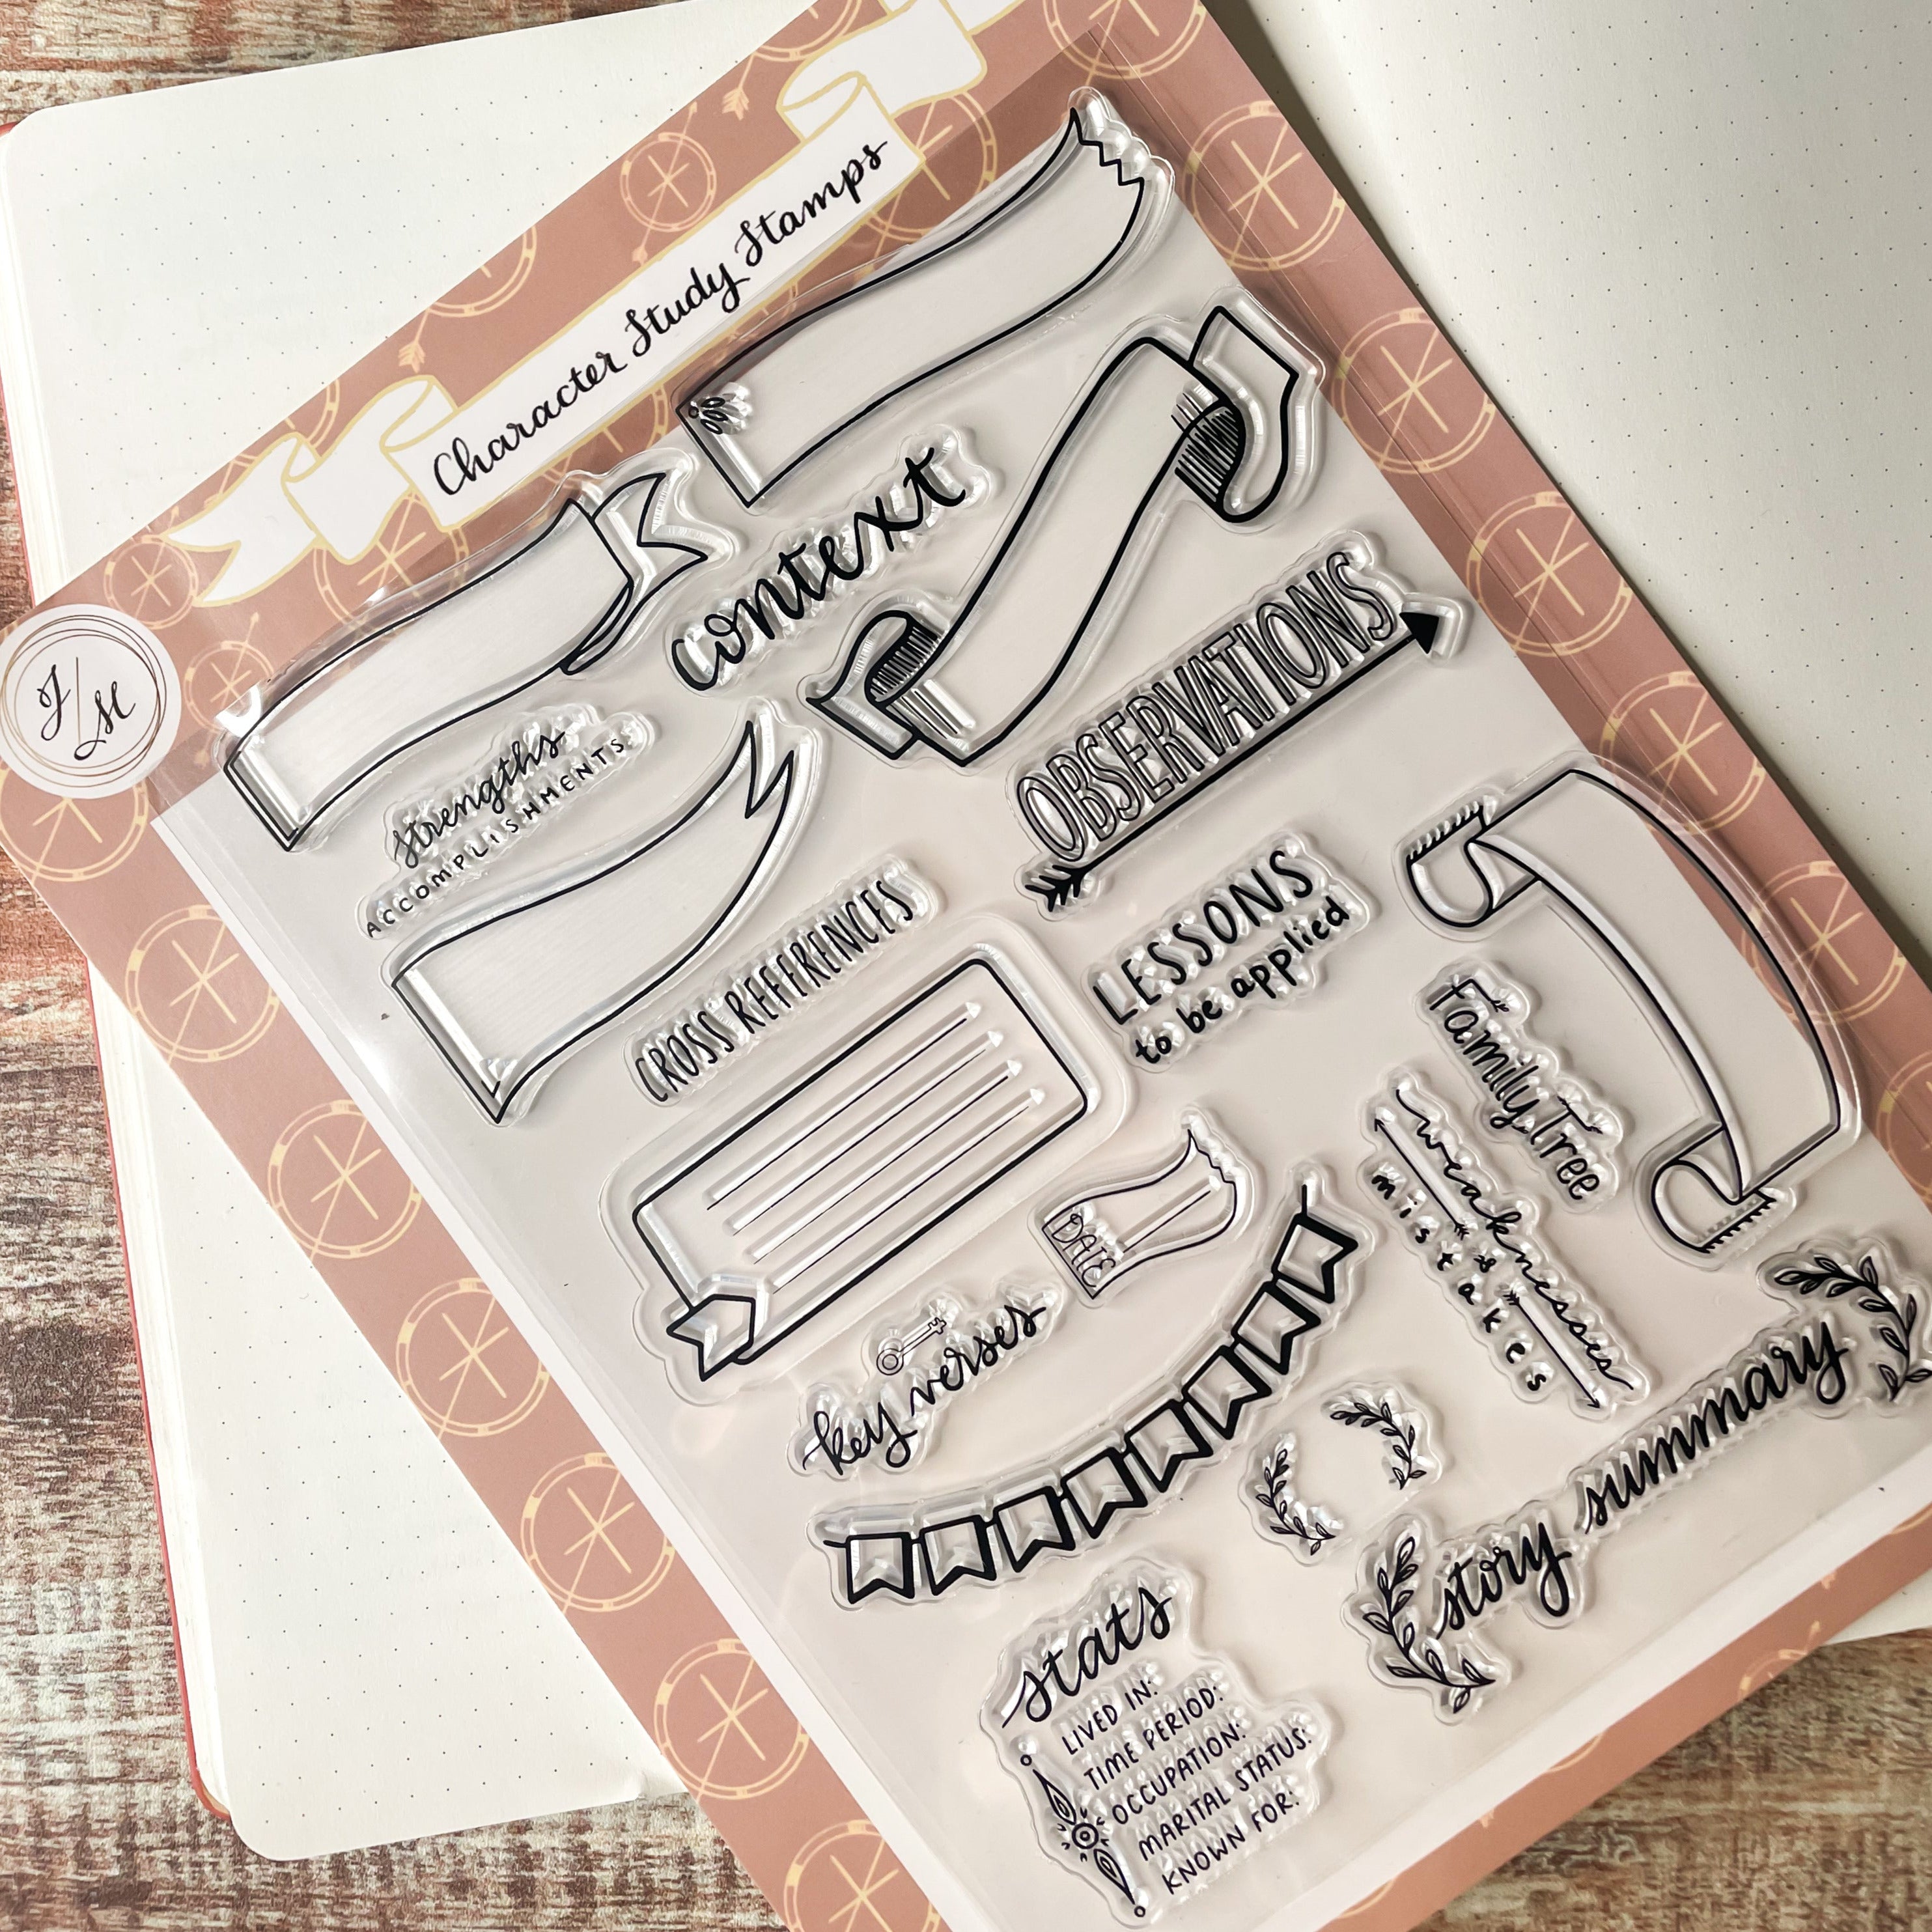 Character Study Stamps
J/M
context
strengths
ACCOMPLISHMENTS
OBSERVATIONS
CROSS REFERENCES
LESSONS
to be applied
Family Tree
weaknesses
mistakes
DATE
key verses
story summary
stats
LIVED IN:
TIME PERIOD:
OCCUPATION:
MARITAL STATUS:
KNOWN FOR: